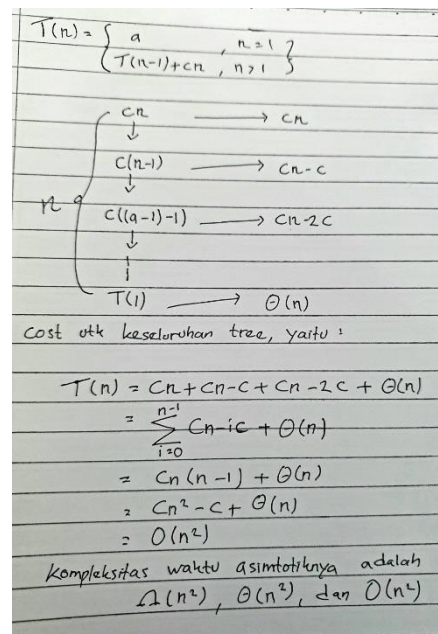 T(n) = { a , n = 1 }
{ T(n-1) + cn , n > 1 }
cn → cn
↓
c(n-1) → cn-c
↓
n { c((n-1)-1) → cn-2c
↓
T(1) → Θ(n)
Cost utk keseluruhan tree, yaitu :
T(n) = Cn + Cn - C + Cn - 2C + Θ(n)
= n-1 Σ i=0 Cn-ic + Θ(n)
= Cn (n-1) + Θ(n)
= Cn² - C + Θ(n)
= O(n²)
Kompleksitas waktu asimtotiknya adalah
Ω(n²), Θ(n²), dan O(n²)